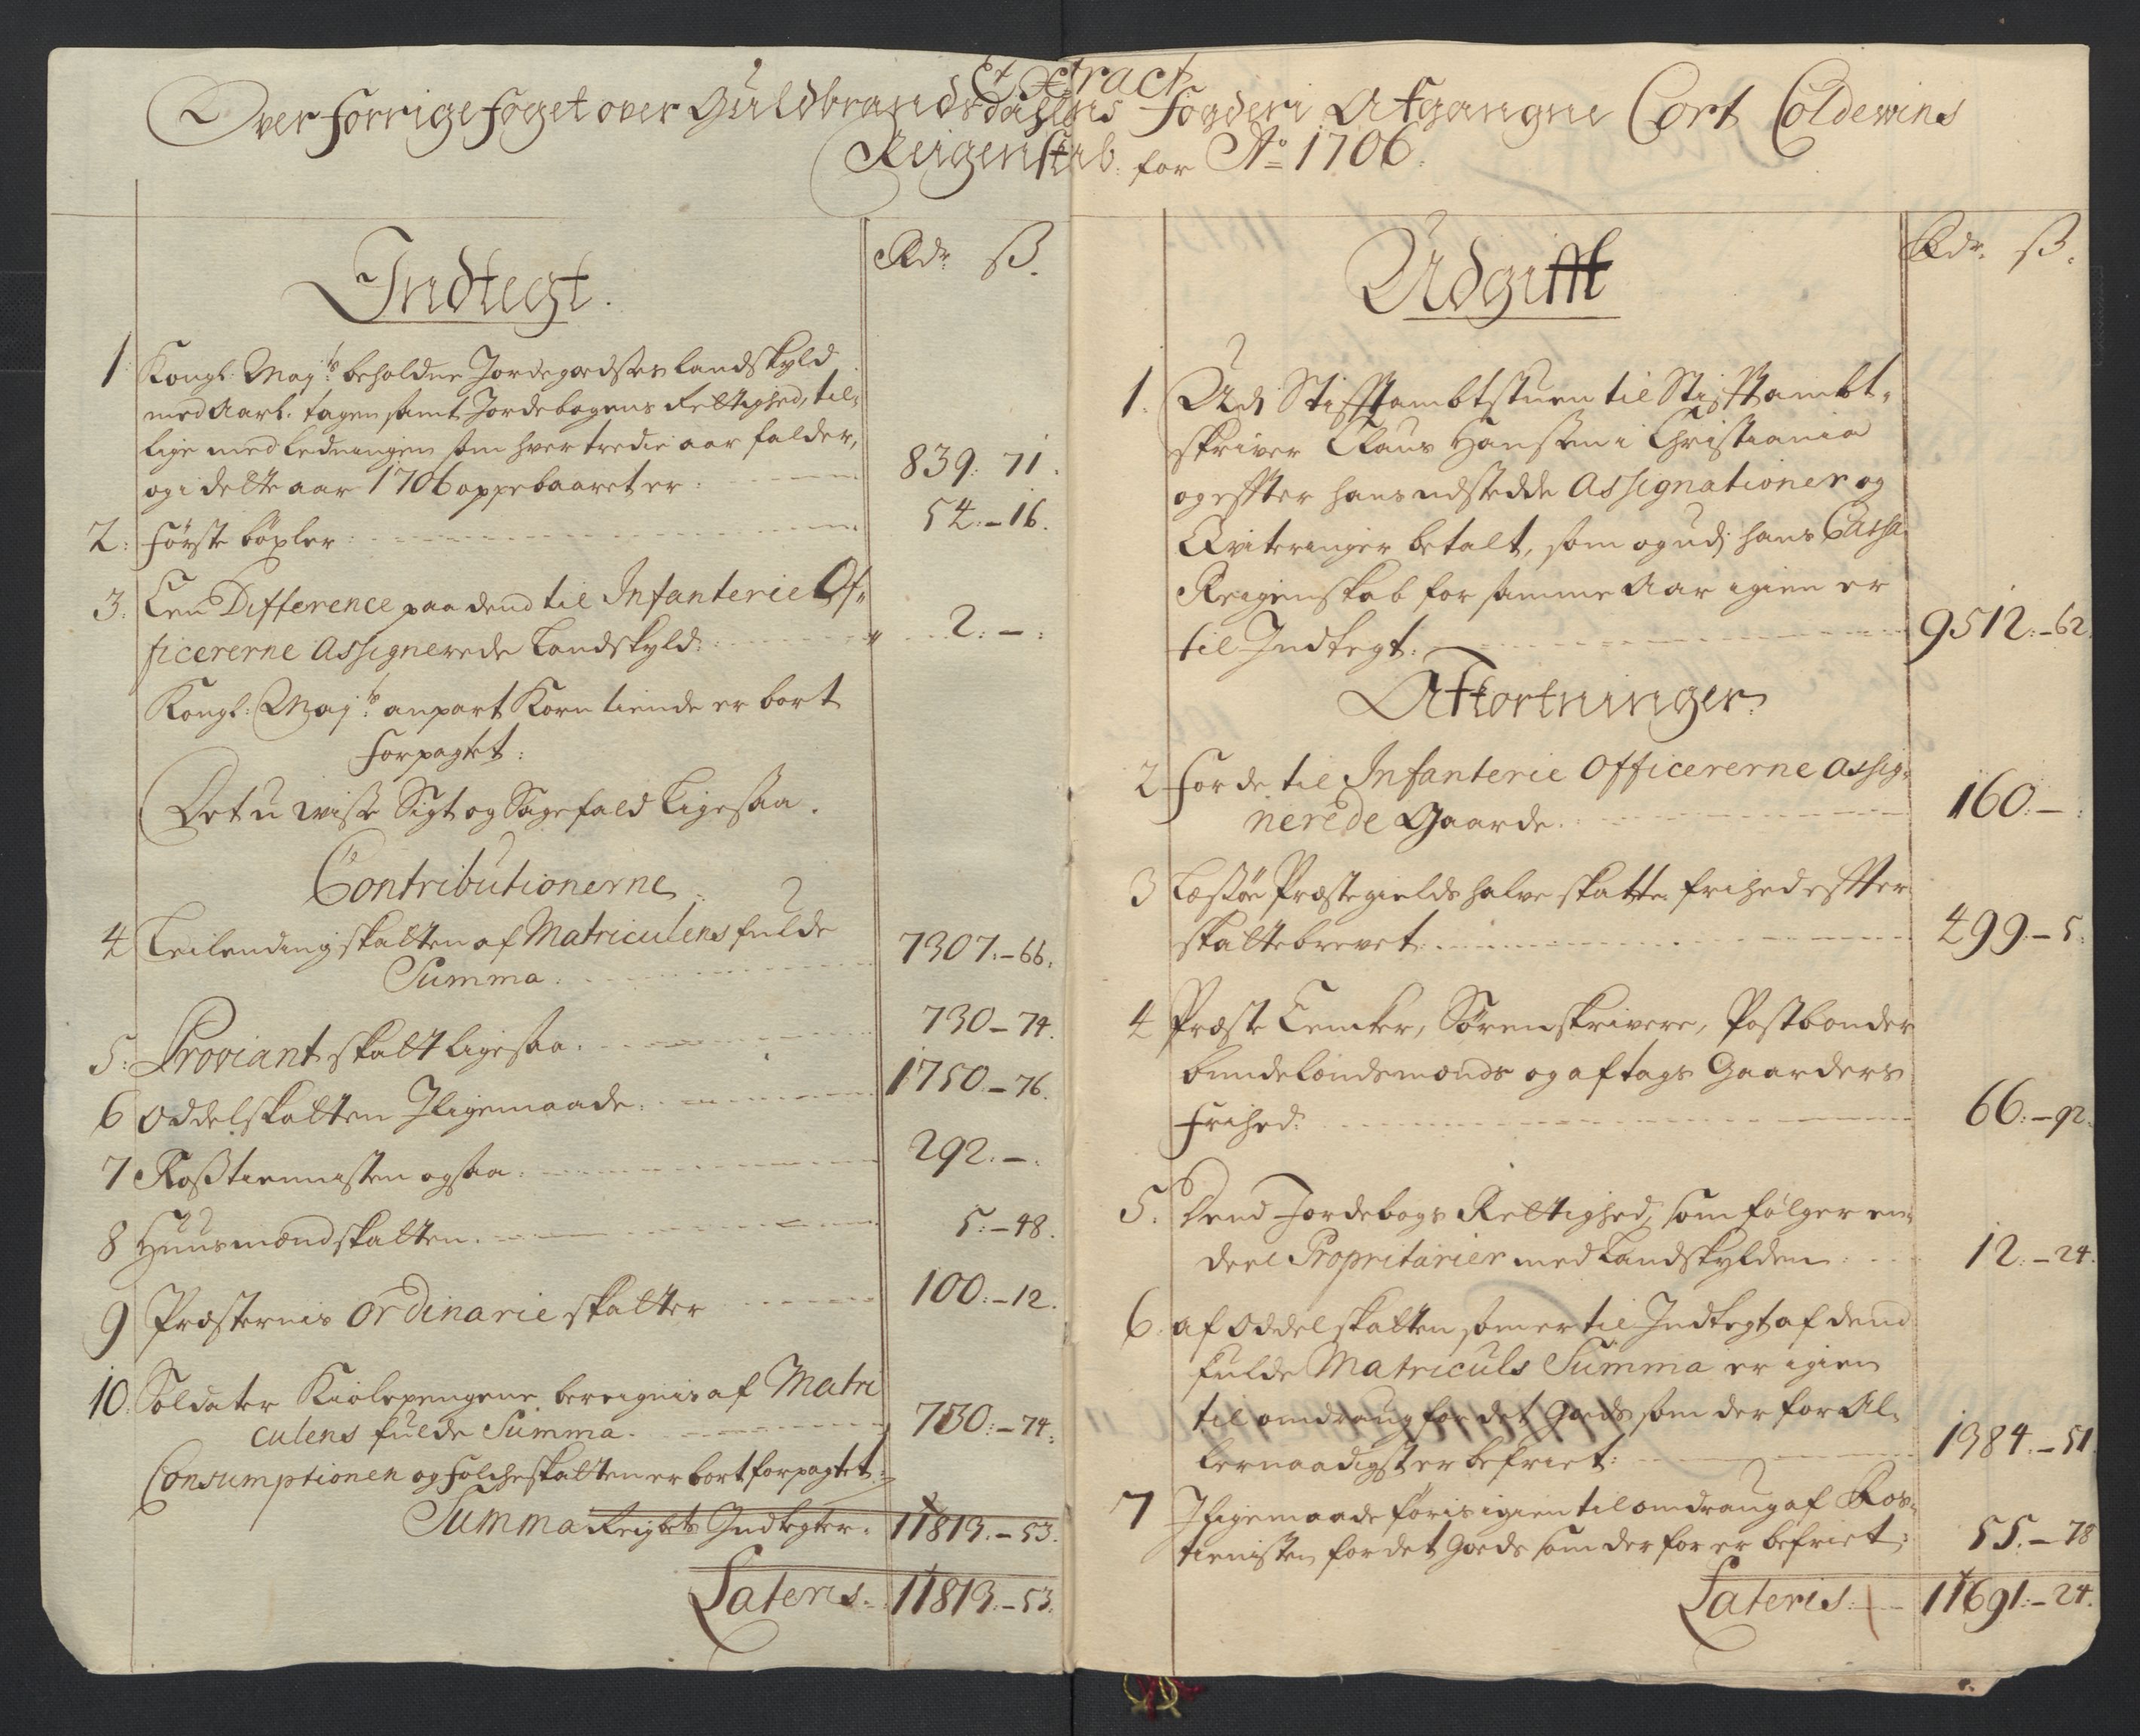 Extract
Over forrige foget over Guldbrandsdahlens Fogderi Afgangne Cort Coldewins
Reigenskab for Ao 1706.
Rdr ß.
Indtegt.
1 Kongl: Mayts: beholdne Jordegodses landskyld
med Aarl. tagen samt Jordebogens Rettighed, til,
lige med ledningen som hver tredie aar falder,
og i dette aar 1706 oppebaaret er: 839: 71.
2: Første böxler: 54:-16.
3. Een Difference paa dend til Infanterie Of,,
ficererne Assignerede Landskyld: 2:-:
Kongl: Mayts: anpart Korn tiende er bort
forpagtet:
Det u wisse Sigt og Sagefald ligesaa.
Contributionerne
4 Leilendingskatten af Matriculens fulde
Summa. 7307:-66.
5: Proviant skatt ligesaa. 730-74.
6 Oddelskatten Jligemaade. 1750-76.
7 Roßtiennisten ogsaa. 292.-.
8 Huusmandskatten. 5:-48.
9 Præsternis ordinarie skatter 100:-12.
10. Soldater Kiolepengene bereignis af Matri
culens fulde Summa. 730:-74:
Consumptionen og Folcheskatten er bortforpagtet.
Summa Reigkets Indtegter. 11813.-53.
Lateris. 11813.-53.
Rdr. ß.
Udgifft
1. Udj Stifftambtstuen til Stifftambt,
skriver Claus Hanssen i Christiania
og effter hans udstedde Assignationer og
Qviteringer betalt, som og udj hans Cassa
Reigenskab for samme Aar igien er
til Indtegt. 9512:-62.
Afkortninger.
2 For de til Infanterie Officererne assig,
nerede Gaarde. 160.-:
3 Lessøe Præstegields halve skatte frihed effter
skattebrevet: 499-5.
4 Præste Encker, Sörenskrivere, Postbonder
bundelændsmænds og aftags Gaarders
Frihed: 66.-92.
5. Dend Jordebogs Rettighed, som følger en,
deel Propritarier med Landskylden: 12.-24.
6. af Oddelskatten som er til Indtegt af dend
fulde Matriculs Summa er igien
til omdraug for det Goeds som der for Al,
lernaadigst er befriet: 1384.-51.
7 Jligemaade föris igien til omdraug af Ros,
tienisten for det Goeds som der for er befriet: 55.-78
Lateris: 11691:-24.